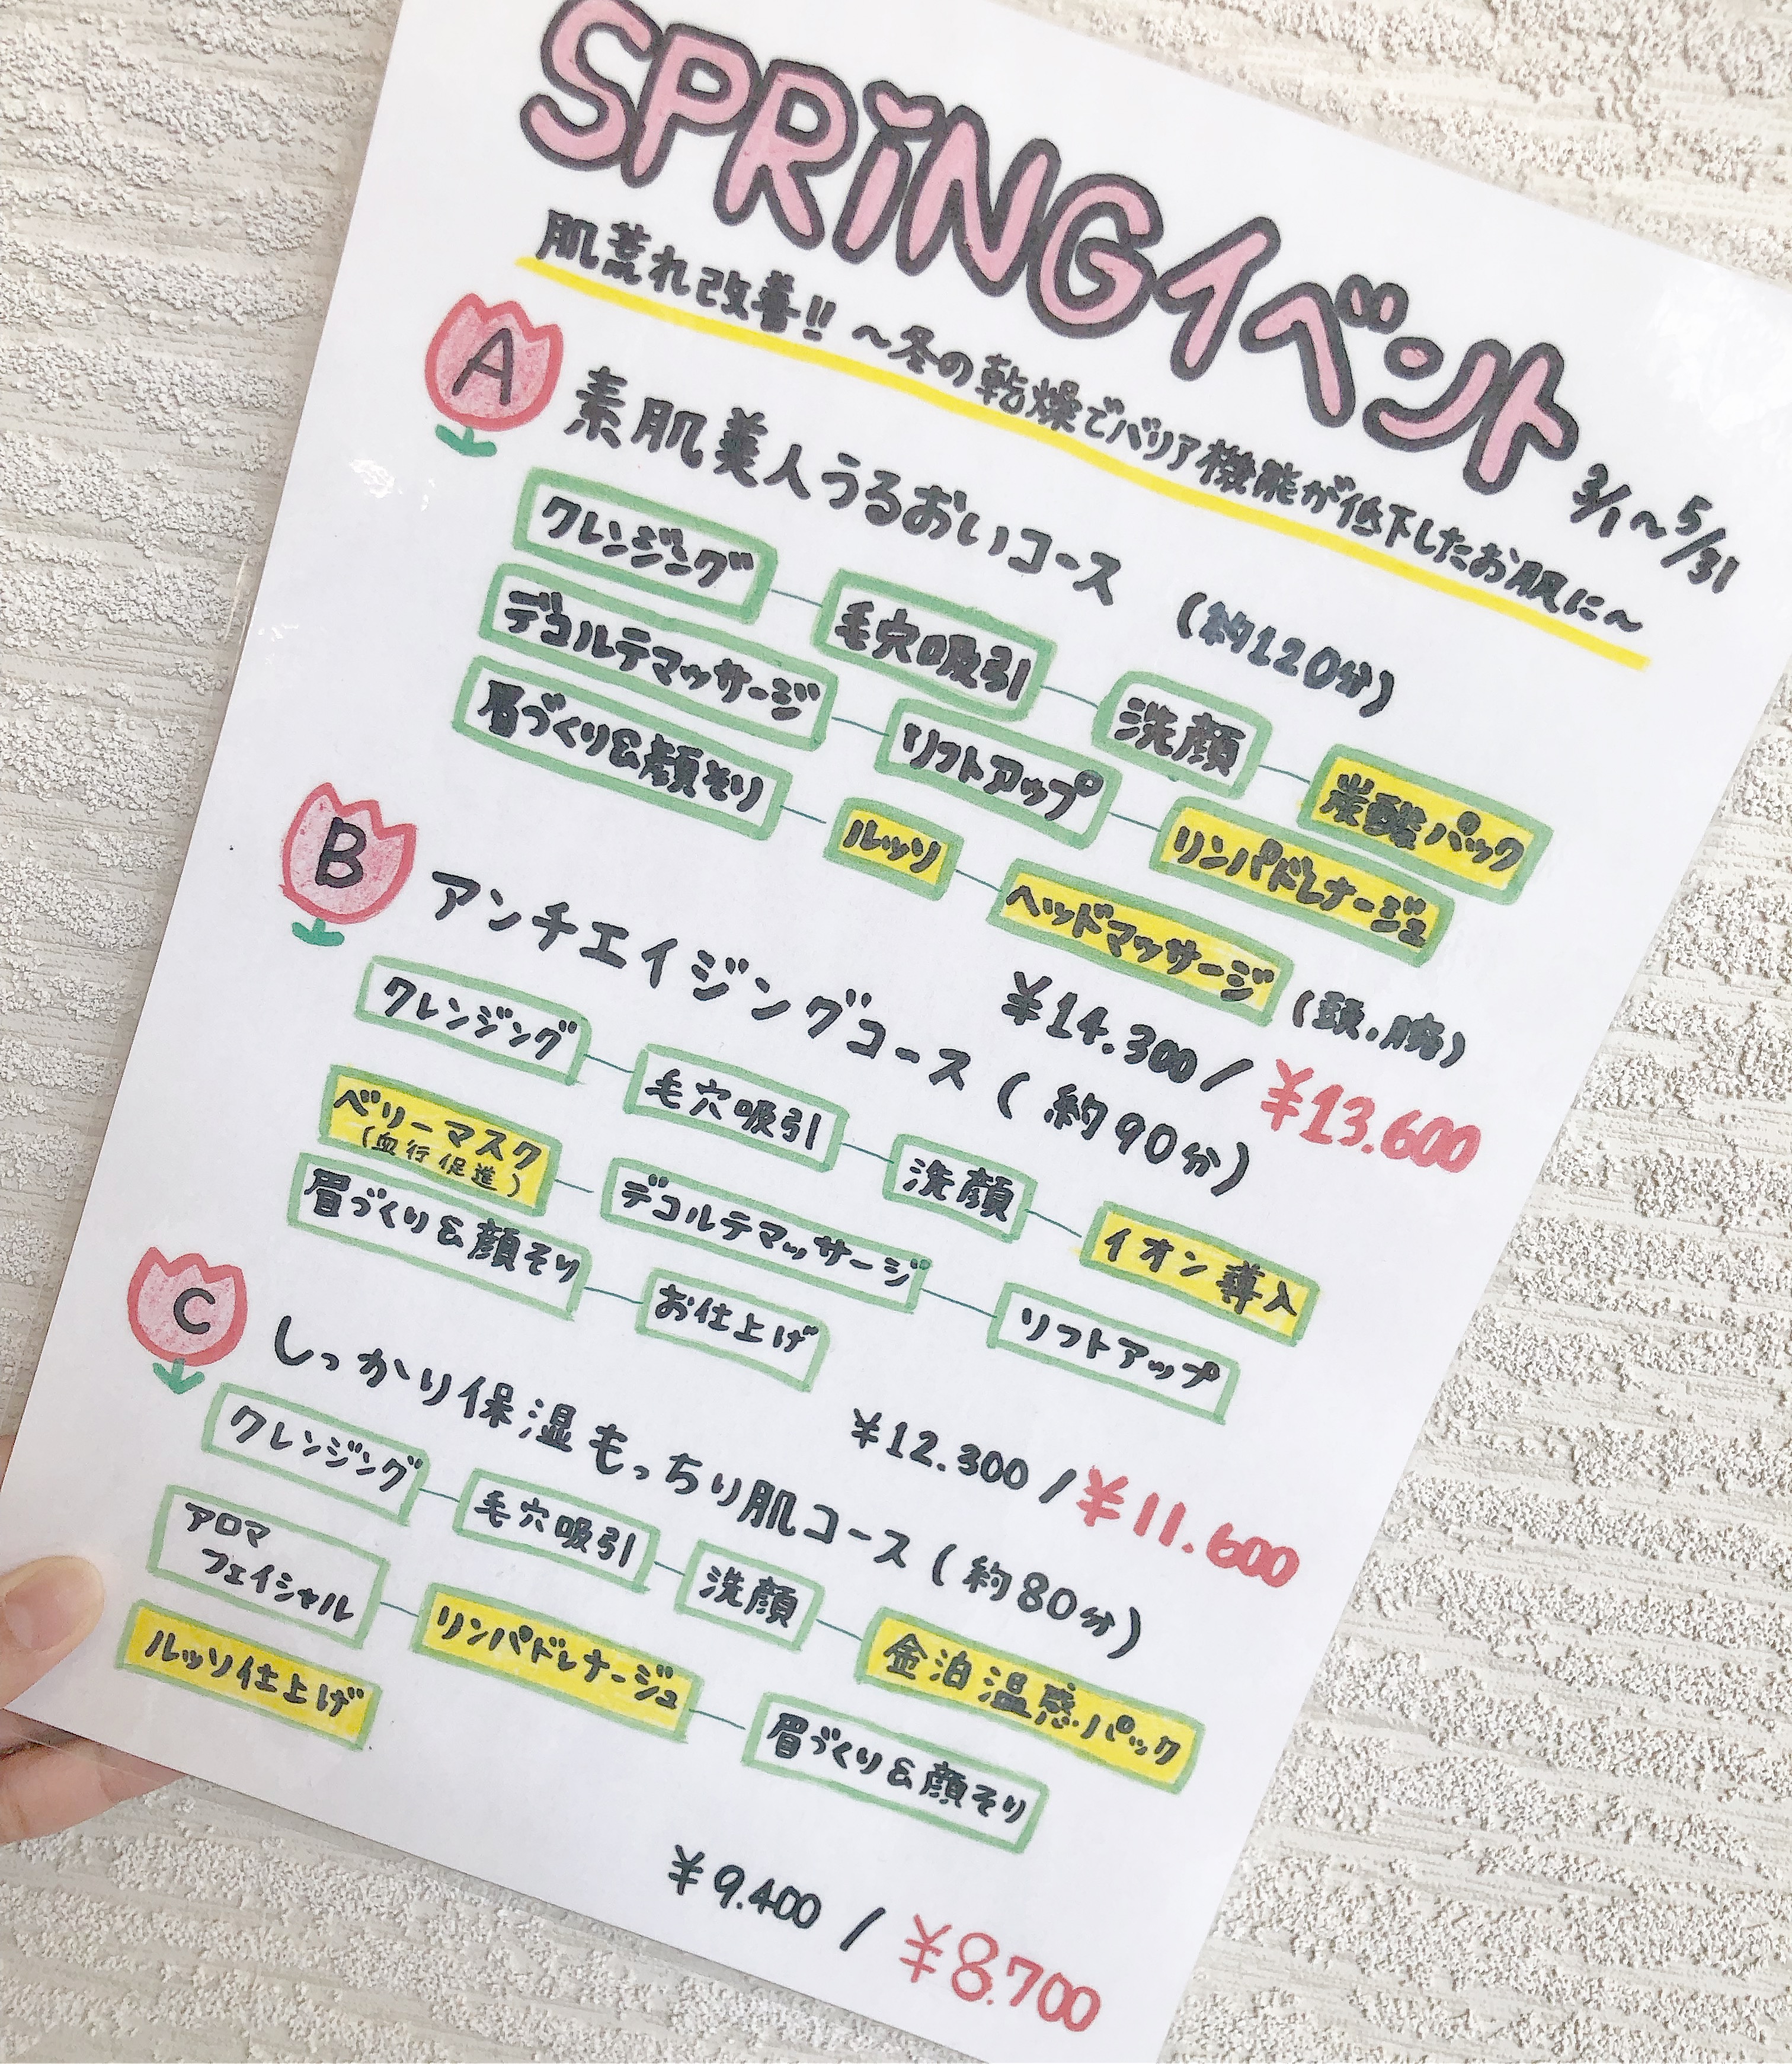 SPRiNGイベント
3/1～5/31
肌荒れ改善!! ～冬の乾燥でバリア機能が低下したお肌に～
A 素肌美人うるおいコース (約120分)
クレンジング 毛穴吸引 洗顔 炭酸パック
デコルテマッサージ リフトアップ リンパドレナージュ
眉づくり&顔そり ルッソ ヘッドマッサージ (頭、腕)
¥14.300 / ¥13.600
B アンチエイジングコース (約90分)
クレンジング 毛穴吸引 洗顔 イオン導入
ベリーマスク (血行促進) デコルテマッサージ リフトアップ
眉づくり&顔そり お仕上げ
¥12.300 / ¥11.600
C しっかり保湿もっちり肌コース (約80分)
クレンジング 毛穴吸引 洗顔 金泊温感パック
アロマ
フェイシャル リンパドレナージュ 眉づくり&顔そり
ルッソ仕上げ
¥9.400 / ¥8.700